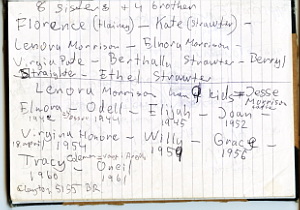 8 sisters + 4 brother
Florence (Haines) - Kate (Strawter) -
Lenora Morrison - Elnora Morrison -
Virginia Pate - Berthalla Strawter - Berryl
Straighter - Ethel Strawter
Lenora Morrison has 9 kids = Jesse
Morrison
Elnora - Odell - Elijah - Joan -
1944 1945 1952
Virginia - Willy - Grace -
18 april 1954 1959 1956
Tracy - Oneil
1960 1961
Clayton 5155 BR